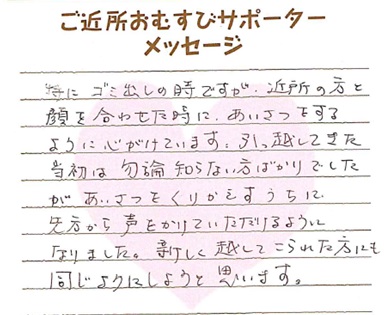 ご近所おむすびサポーター
メッセージ
特に ゴミ出しの時ですが、近所の方と
顔を合わせた時に、あいさつをする
ように心がけています。引っ越してきた
当初は 勿論 知らない方ばかりでした
が あいさつをくりかえすうちに
先方から 声をかけていただけるように
なりました。新しく 越して こられた方にも
同じようにしようと思います。